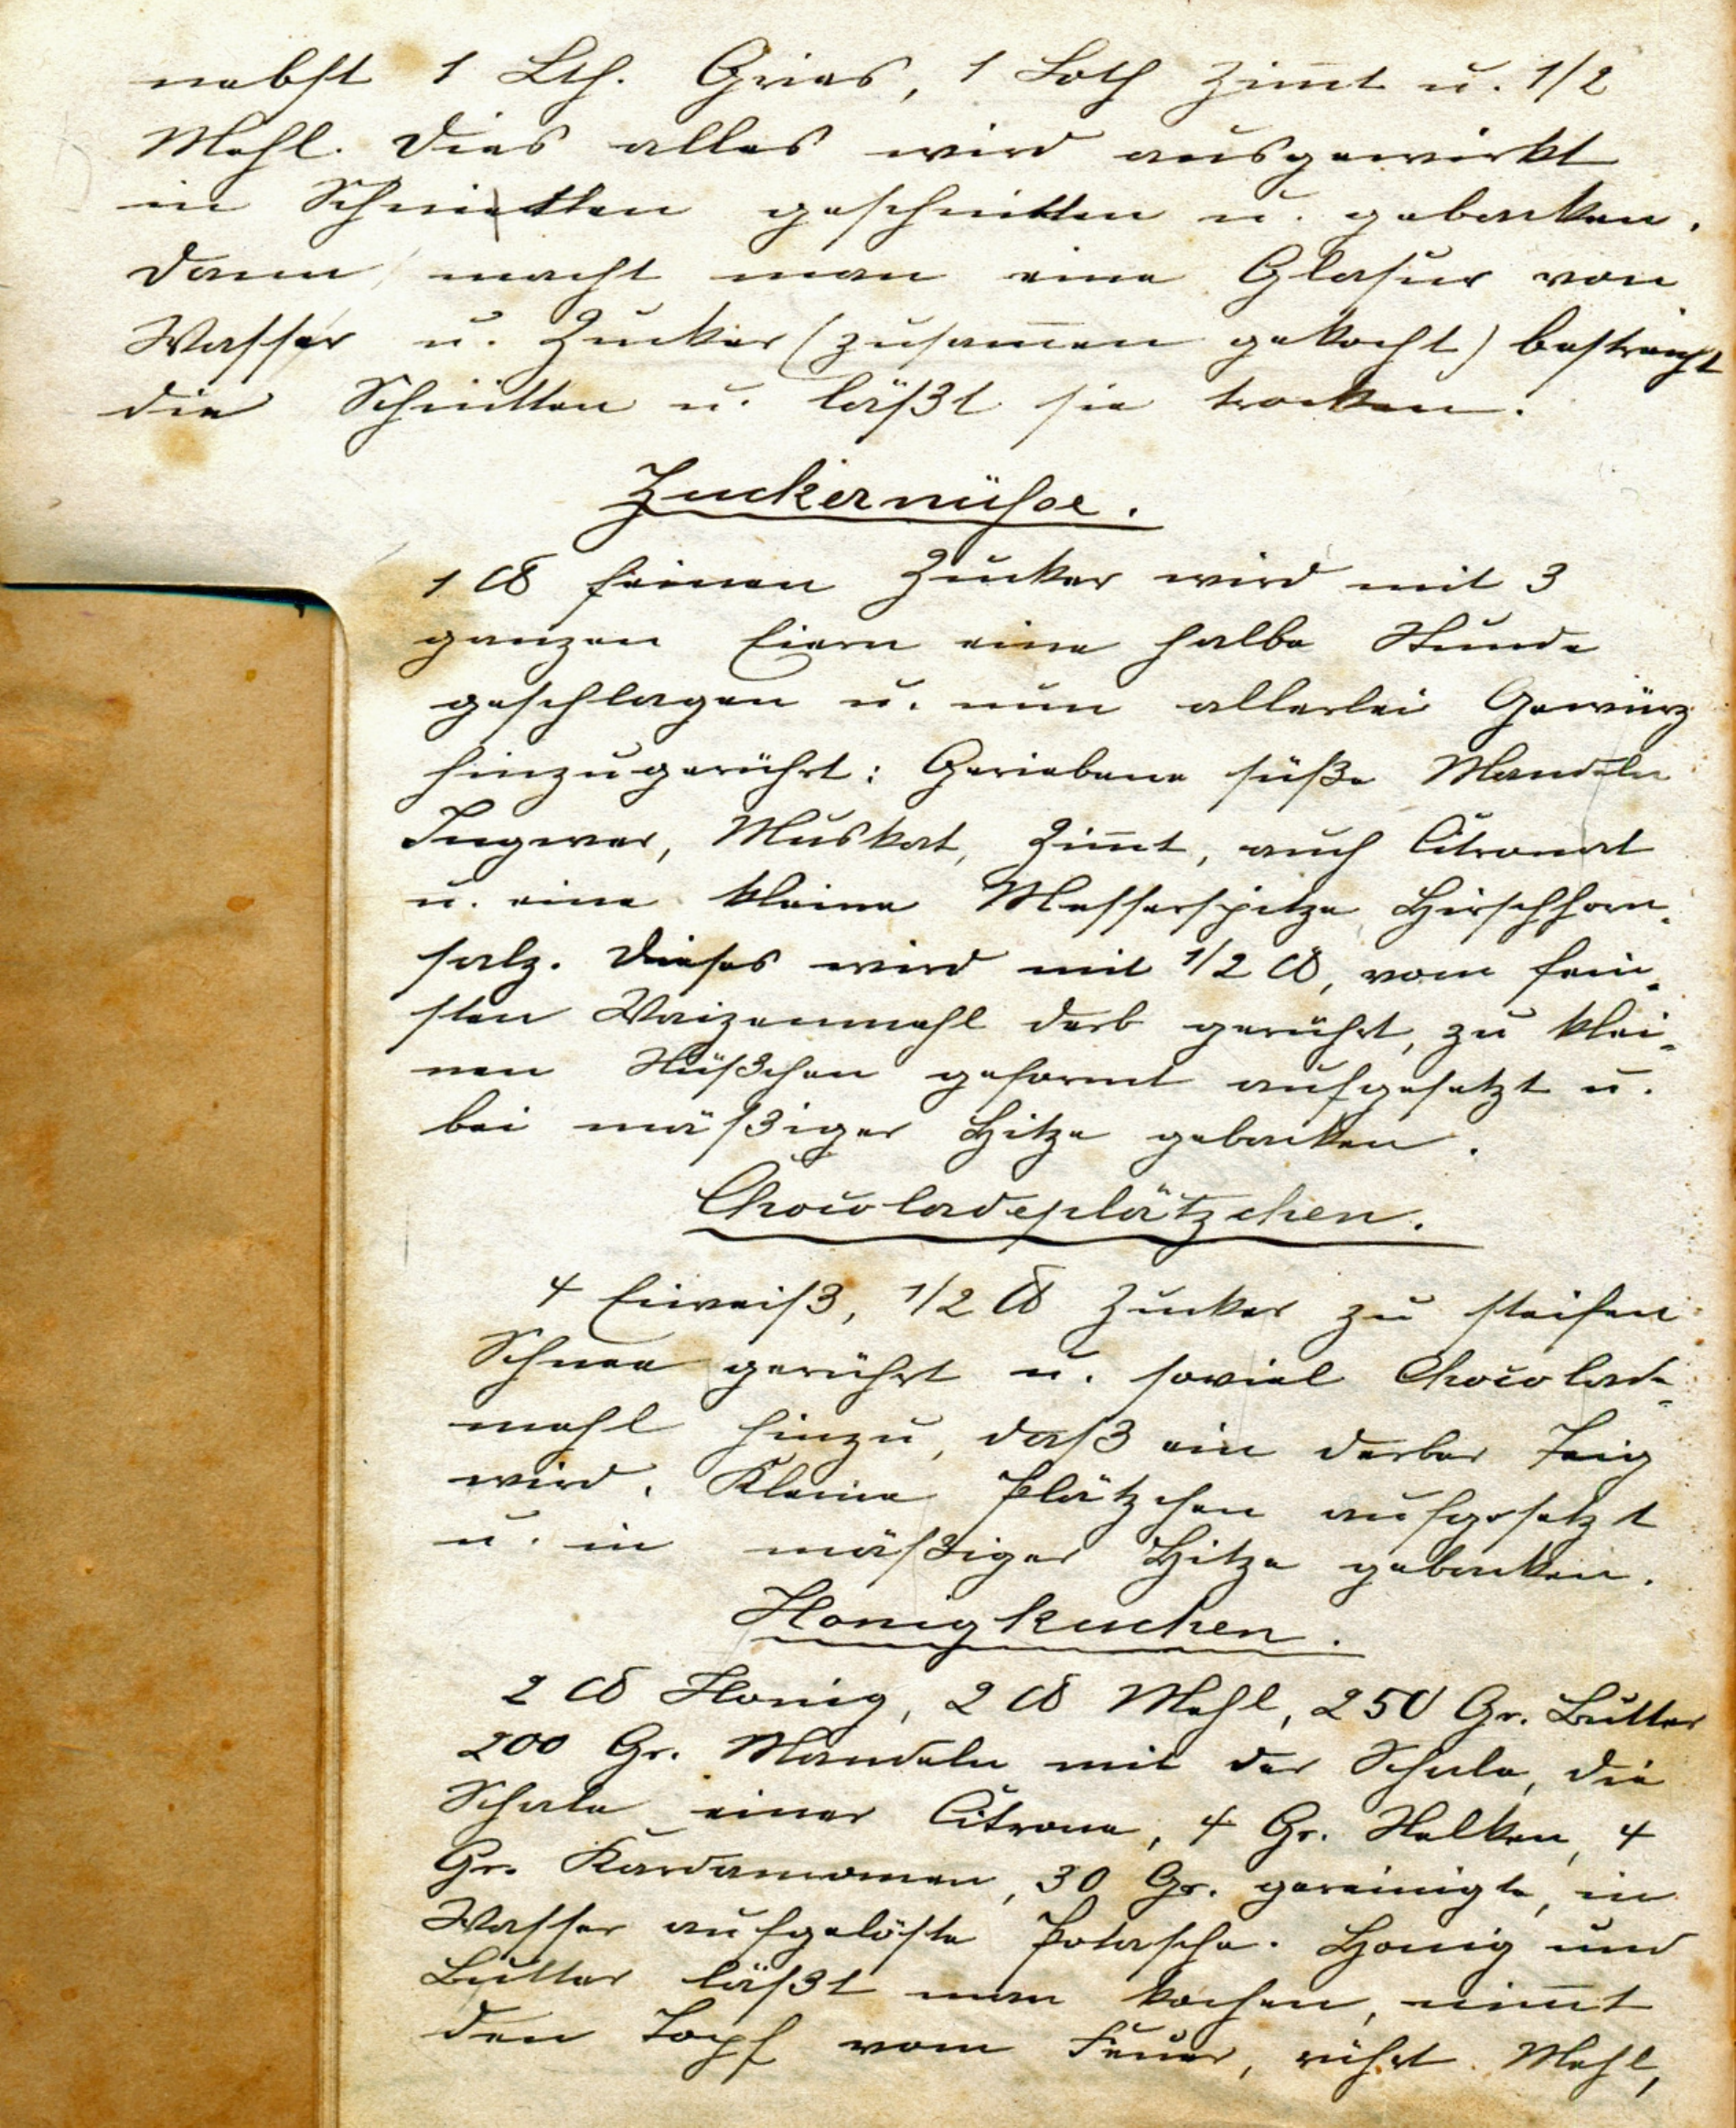 nebst 1 Lth. Gries, 1 Loth Zimt u. 1/2
Mehl. Dies alles wird ausgewirkt
in Schnitten geschnitten u. gebacken.
Dann macht man eine Glasur von
Wasser u. Zucker (zusamen gekocht) bestreicht
die Schnitten u. läßt sie trocken.
Zuckernüsse.
1 ℔ feinen Zucker wird mit 3
ganzen Eiern eine halbe Stunde
geschlagen u. nun allerlei Gewürz
hinzugerührt: Geriebene süße Mandeln
Ingwer, Muskat, Zimt, auch Citronat
u. eine kleine Messerspitze Hirschhorn-
salz. Dieses wird mit 1/2 ℔, vom fein-
sten Waizenmehl derb gerührt, zu klei-
nen Nüßchen geformt aufgesetzt u.
bei mäßiger Hitze gebacken.
Chocoladeplätzchen.
4 Eiweiß, 1/2 ℔ Zucker zu steifen
Schnee gerührt u. soviel Chocolade-
mehl hinzu, daß ein derber Teig
wird. Kleine Plätzchen aufgesetzt
u. in mäßiger Hitze gebacken.
Honigkuchen.
2 ℔ Honig, 2 ℔ Mehl, 250 Gr. Butter
200 Gr. Mandeln mit der Schale, die
Schale einer Citrone, 4 Gr. Nelken, 4
Gr. Kardamomen, 30 Gr. gereinigte, in
Wasser aufgelöste Potasche. Honig und
Butter läßt man kochen, nimt
den Topf vom Feuer, rührt Mehl,